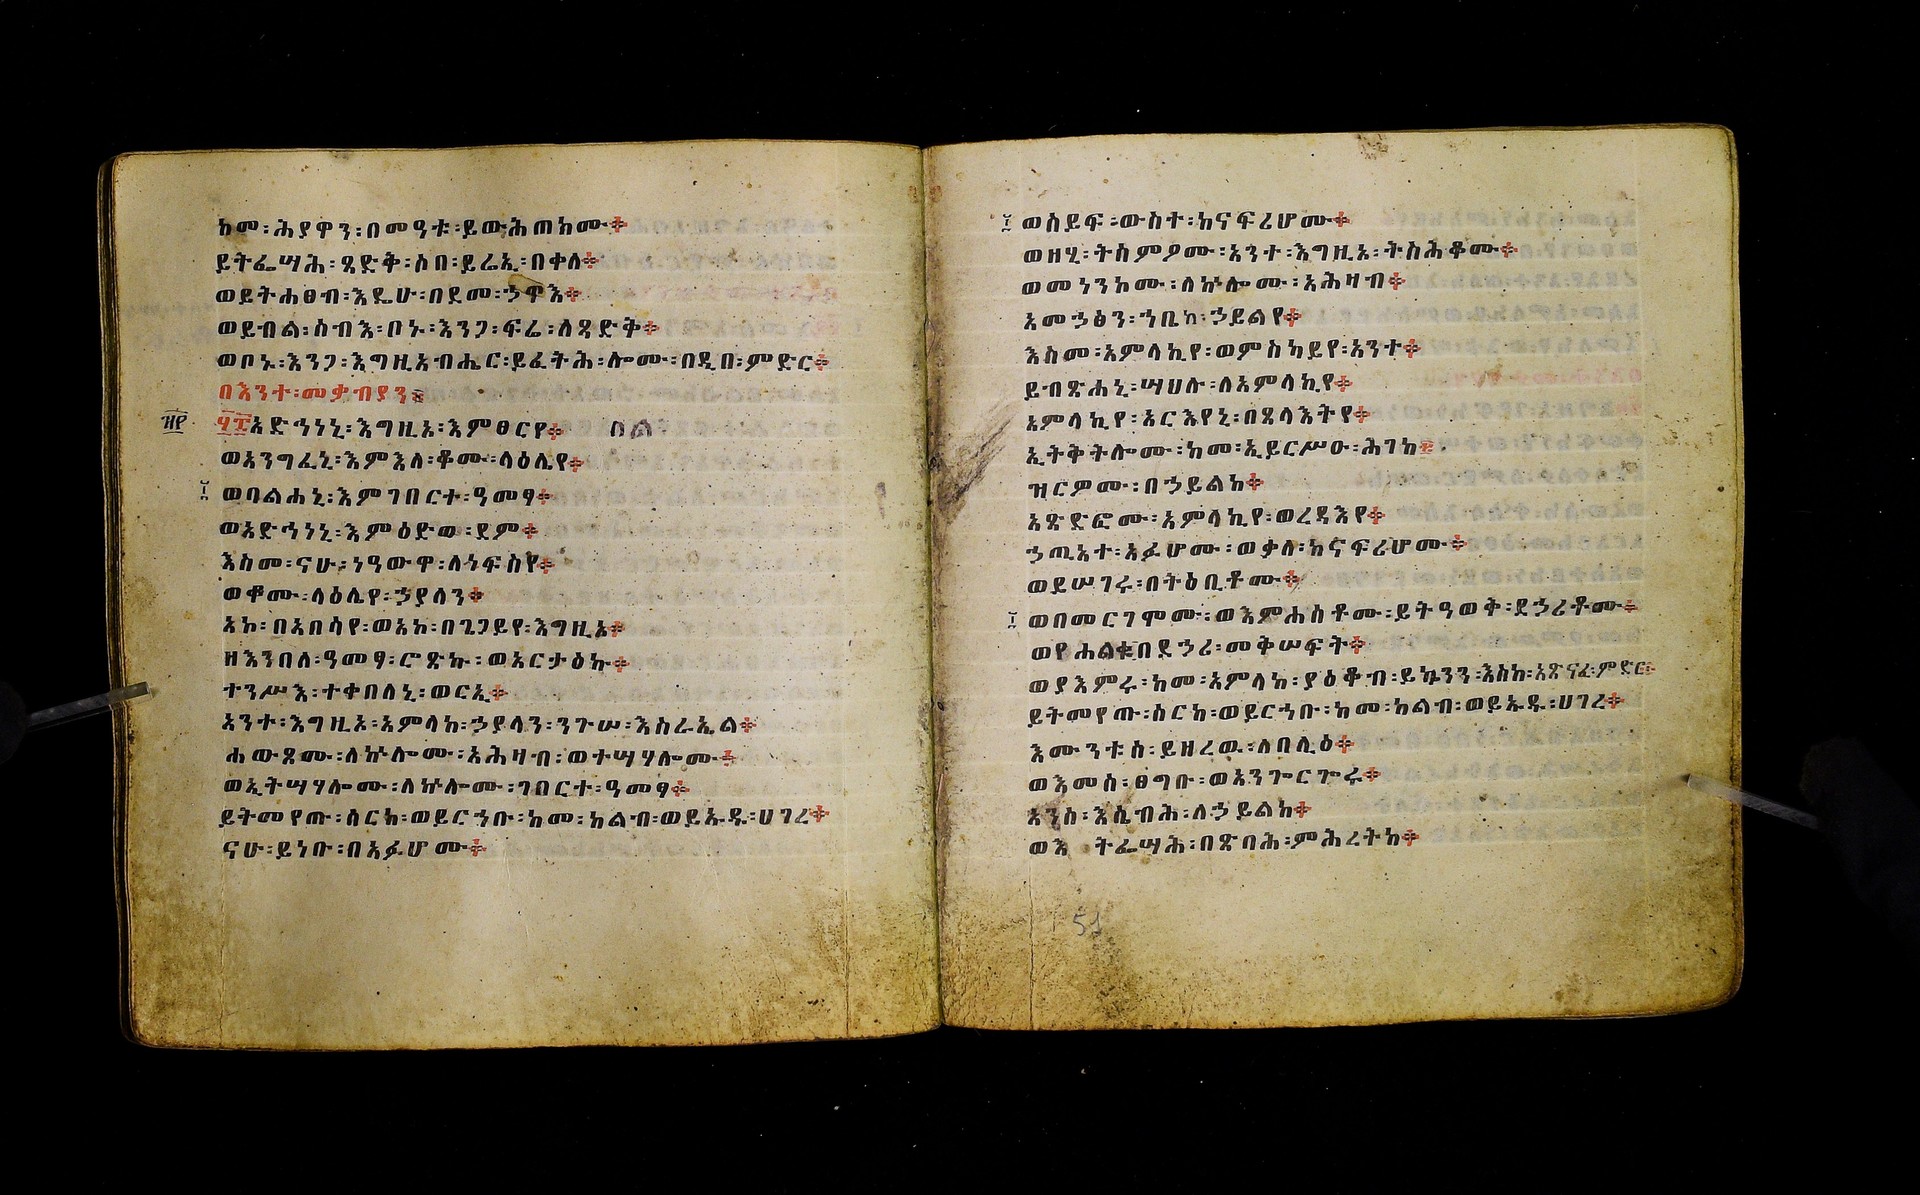 ከመ፡ሕያዋን፡በመዓቱ፡ይውሕጠክሙ።
ይትፌሣሕ፡ጻድቅ፡ሶበ፡ይሬኢ፡በቀለ።
ወይትሐፀብ፡እዴሁ፡በደመ፡ኃጥእ።
ወይብል፡ሰብእ፡ቦኑ፡እንጋ፡ፍሬ፡ለጻድቅ።
ወቦኑ፡እንጋ፡እግዚአብሔር፡ይፈትሕ፡ሎሙ፡በዲበ፡ምድር።
በእንተ፡መቃብያን።
፶፰ አድኅነኒ፡እግዚኦ፡እምፀርየ። በል
ወአንግፈኒ፡እምእለ፡ቆሙ፡ላዕሌየ።
ወባልሐኒ፡እምገበርተ፡ዓመፃ።
ወአድኅነኒ፡እምዕድው፡ደም።
እስመ፡ናሁ፡ነዓውዋ፡ለነፍስየ።
ወቆሙ፡ላዕሌየ፡ኃያላን።
አኮ፡በአበሳየ፡ወአኮ፡በጌጋይየ፡እግዚኦ።
ዘእንበለ፡ዓመፃ፡ሮጽኩ፡ወአርታዕኩ።
ተንሥእ፡ተቀበለኒ፡ወርኢ።
አንተ፡እግዚኦ፡አምላከ፡ኃያላን፡ንጉሠ፡እስራኤል።
ሐውጾሙ፡ለኵሎሙ፡አሕዛብ፡ወተሣሃሎሙ።
ወኢትሣሃሎሙ፡ለኵሎሙ፡ገበርተ፡ዓመፃ።
ይትመየጡ፡ሰርከ፡ወይርኅቡ፡ከመ፡ከልብ፡ወይኡዱ፡ሀገረ።
ናሁ፡ይነቡ፡በአፉሆሙ።
ወሰይፍ፡ውስተ፡ከናፍሪሆሙ።
ወዘሂ፡ትሰምዖሙ፡አንተ፡እግዚኦ፡ትስሕቆሙ።
ወመነንኮሙ፡ለኵሎሙ፡አሕዛብ።
አመኃፅን፡ኀቤከ፡ኃይልየ።
እስመ፡አምላኪየ፡ወምስካይየ፡አንተ።
ይብጽሐኒ፡ሣህሉ፡ለአምላኪየ።
አምላኪየ፡አርእየኒ፡በጸላእትየ።
ኢትቅትሎሙ፡ከመ፡ኢይርሥዑ፡ሕገከ።
ዝርዎሙ፡በኃይልከ።
አጽድፎሙ፡አምላኪየ፡ወረዳእየ።
ኃጢአተ፡አፉሆሙ፡ወቃለ፡ከናፍሪሆሙ።
ወይሠገሩ፡በትዕቢቶሙ።
ወበመርገሞሙ፡ወእምሐሰቶሙ፡ይትዓወቅ፡ደኃሪቶሙ።
ወየሐልቁ፡በደኃሪ፡መቅሠፍት።
ወያእምሩ፡ከመ፡አምላከ፡ያዕቆብ፡ይኴንን፡እስከ፡አጽናፈ፡ምድር።
ይትመየጡ፡ሰርከ፡ወይርኅቡ፡ከመ፡ከልብ፡ወይኡዱ፡ሀገረ።
እሙንቱሰ፡ይዘረዉ፡ለበሊዕ።
ወእመሰ፡ፀግቡ፡ወአንጐርጐሩ።
አንሰ፡እሴብሕ፡ለኃይልከ።
ወእ ትፌሣሕ፡በጽባሕ፡ምሕረትከ።
51